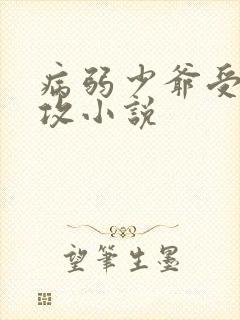 病弱少爷受
攻小説
望筆生墨